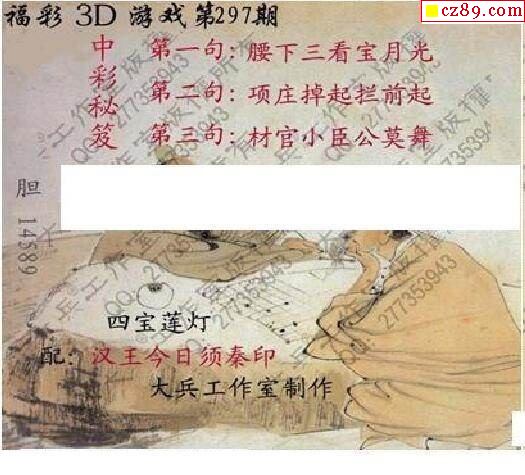 cz89.com
福彩 3D 游戏第297期
中彩秘笈
第一句: 腰下三看宝月光
第二句: 项庄掉起拦前起
第三句: 材官小臣公莫舞
胆 14589
四宝莲灯
配: 汉王今日须秦印
大兵工作室制作
大兵工作室版權所有
QQ:277353943